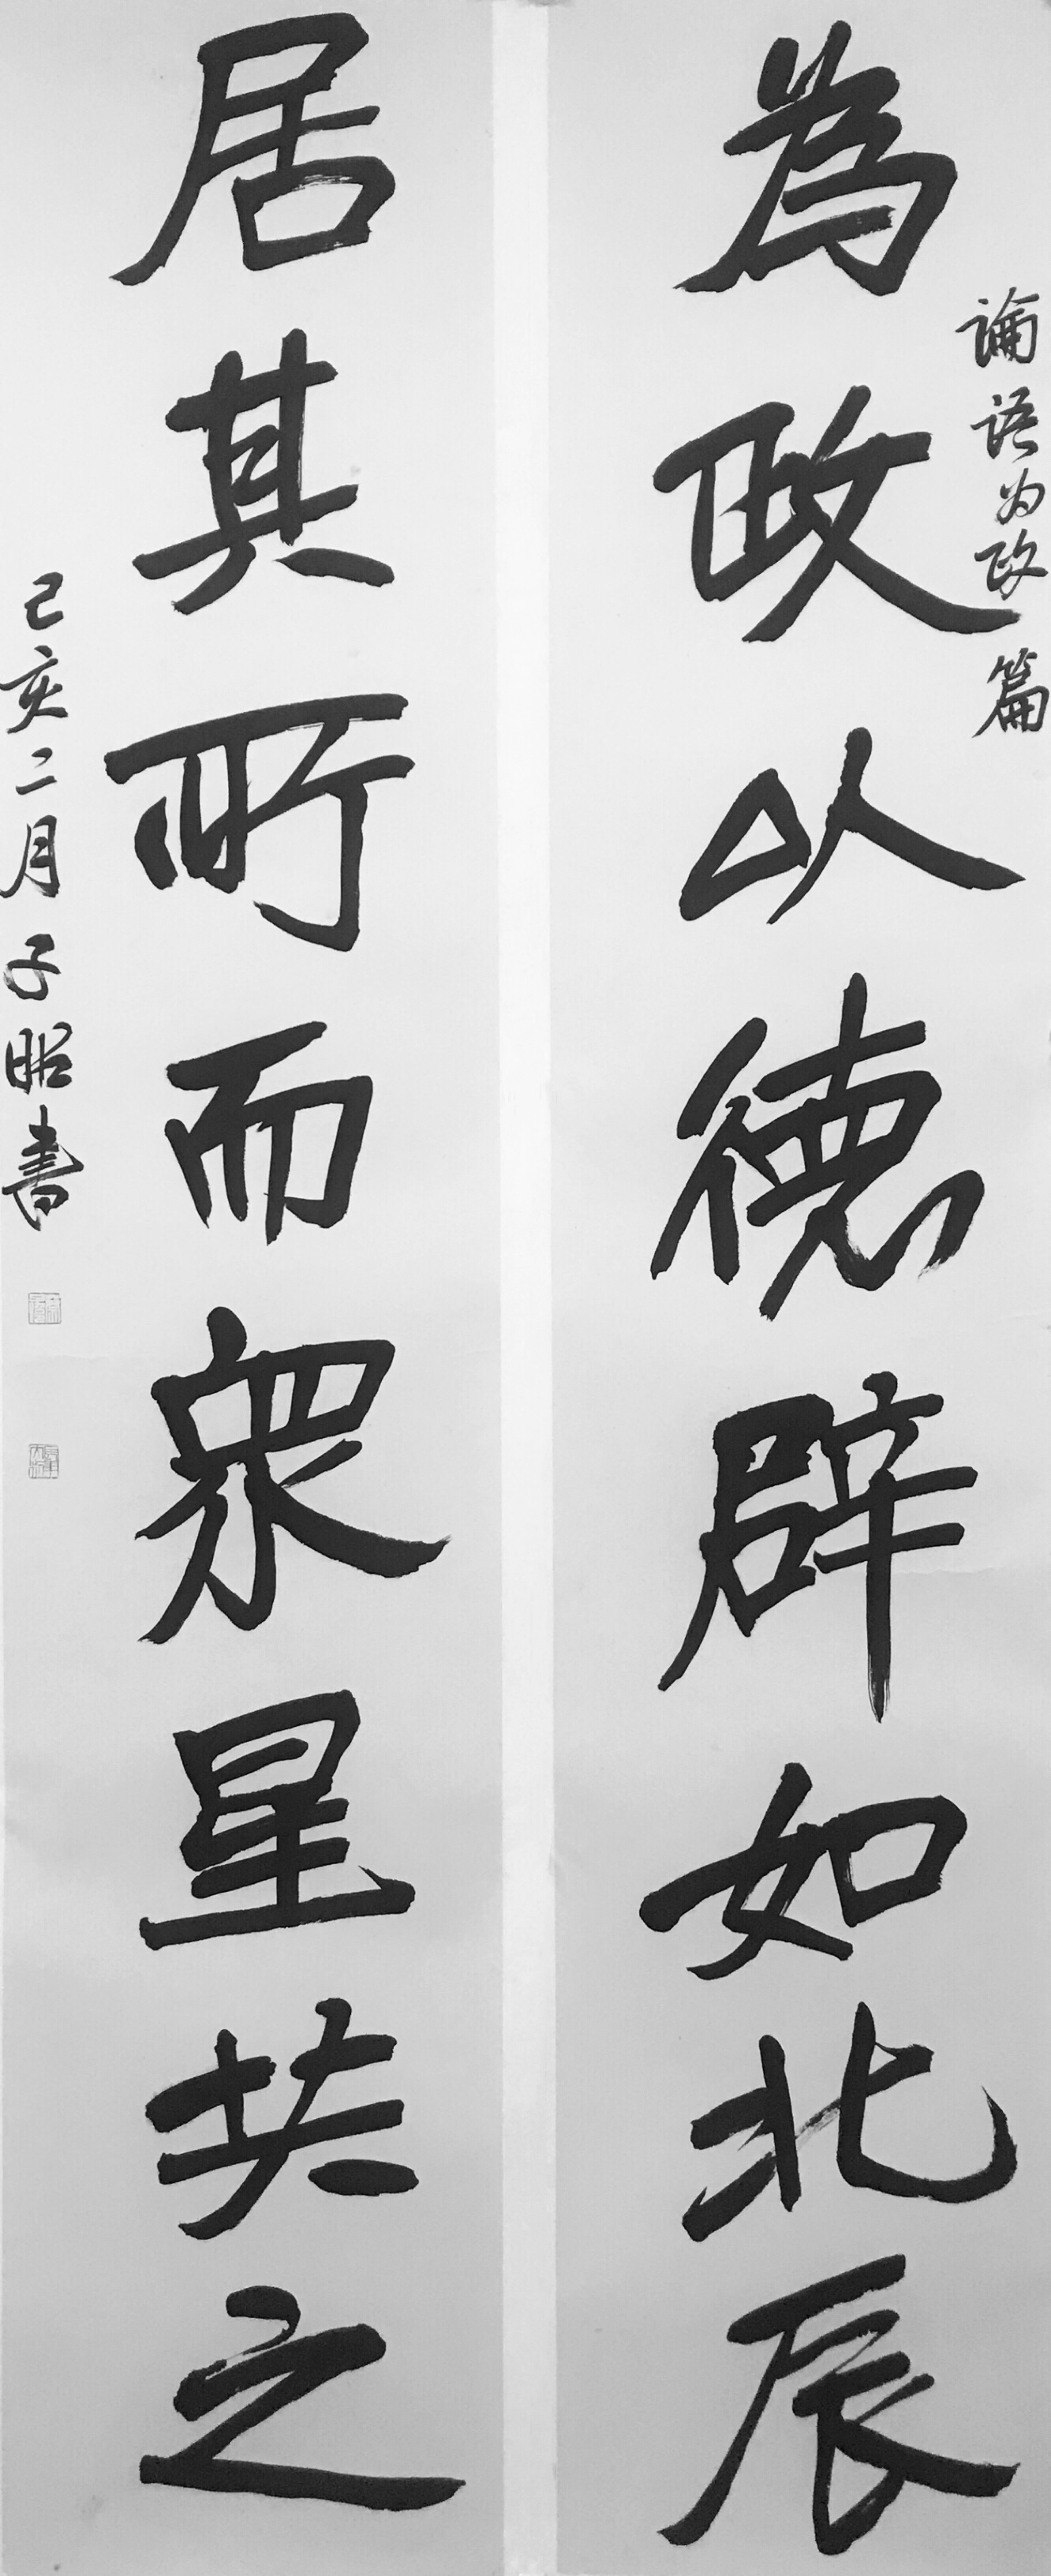 論語为政篇
為政以德辟如北辰
居其所而眾星共之
己亥二月子昭書